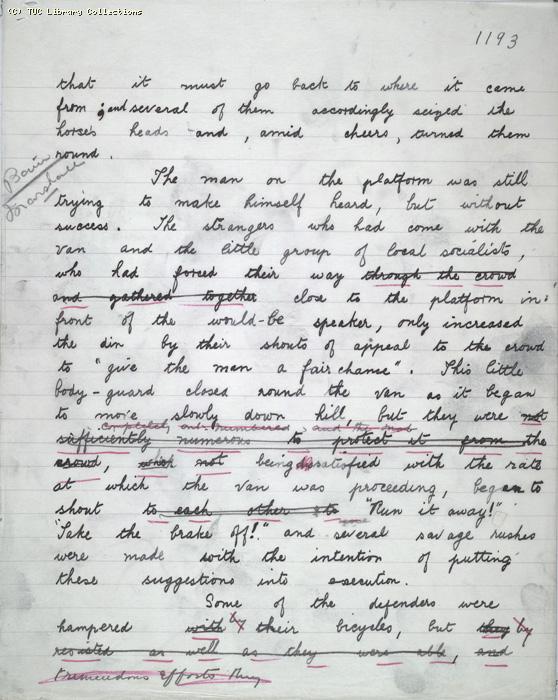 (C) TUC Library Collections
1193
that it must go back to where it came
from; and several of them accordingly seized the
horses heads and, amid cheers, turned them
round.
The man on the platform was still
trying to make himself heard, but without
success. The strangers who had come with the
van and the little group of local socialists,
who had forced their way through the crowd
and gathered together close to the platform in
front of the would-be speaker, only increased
the din by their shouts of appeal to the crowd
to "give the man a fair chance". This little
body-guard closed round the van as it began
to move slowly down hill, but they were not
completely outnumbered and the mob
sufficiently numerous to protect it from the
crowd, which not being dissatisfied with the rate
at which the van was proceeding, began to
shout to each other to "Run it away!"
"Take the brake off!" and several savage rushes
were made with the intention of putting
these suggestions into execution.
Some of the defenders were
hampered with by their bicycles, but they by
resisted as well as they were able, and
tremendous efforts they